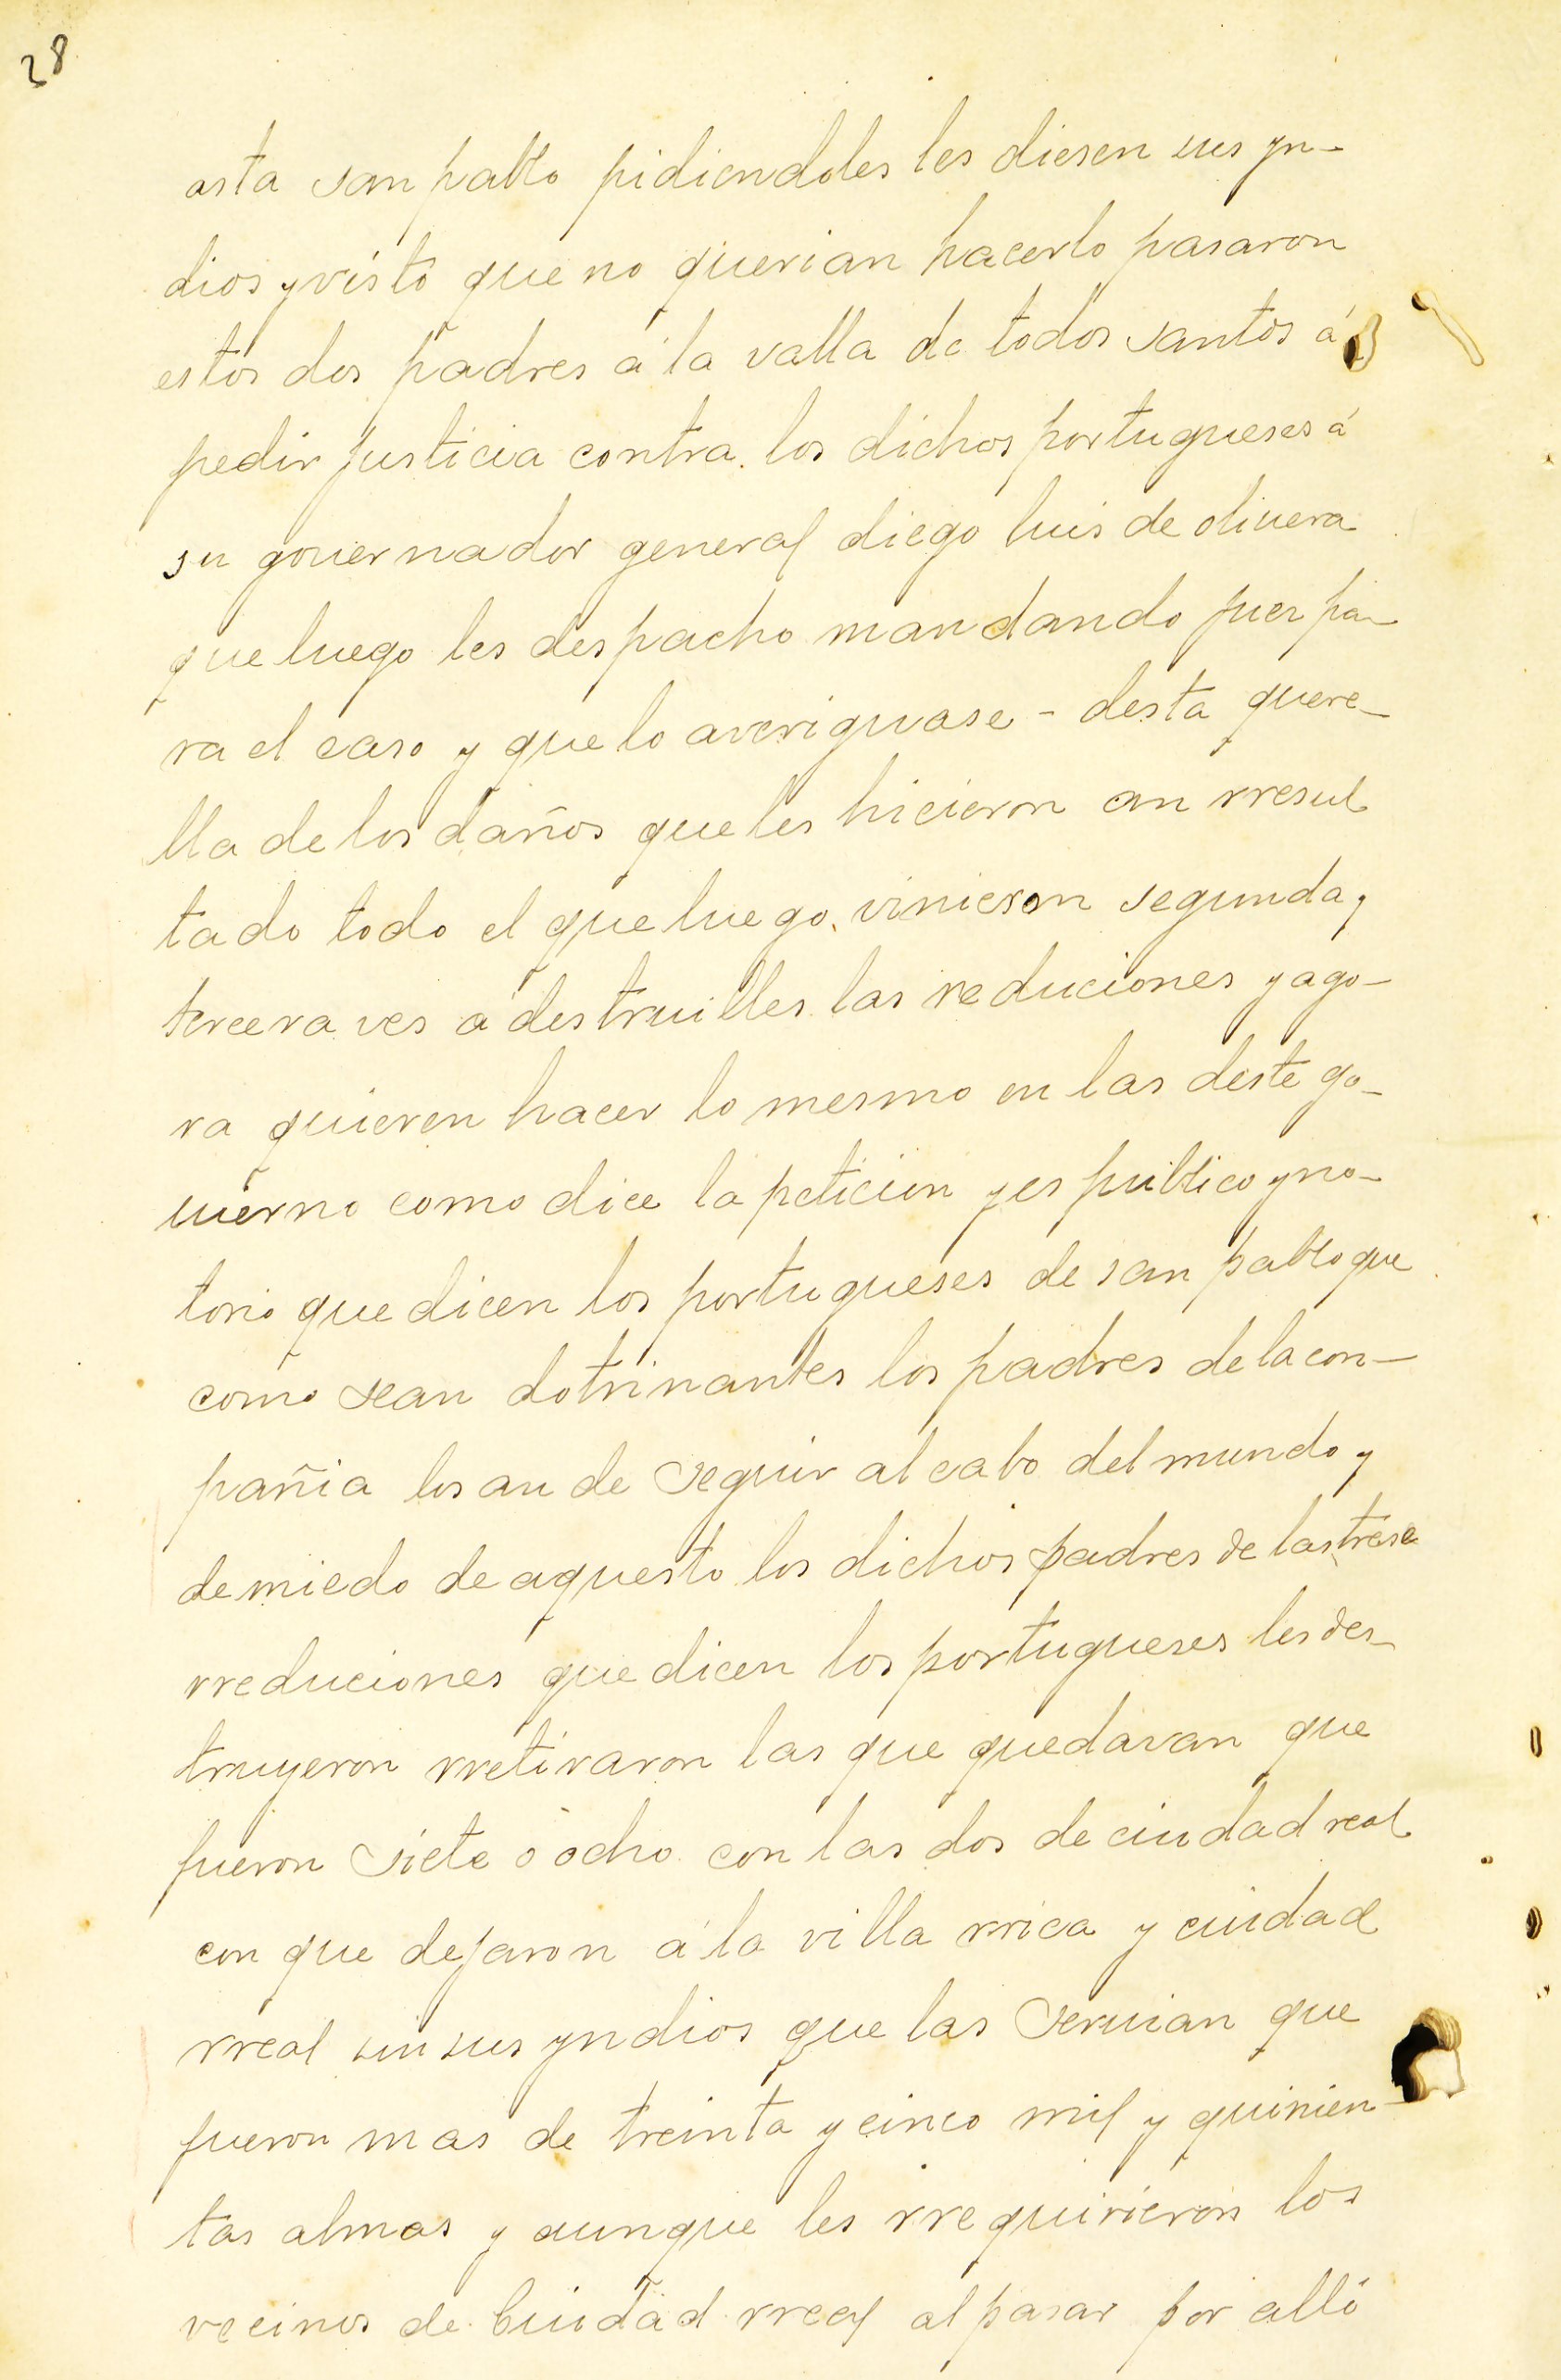 28
asta san pablo pidiendoles les diesen sus yn-
dios y visto que no querian hacerlo pasaron
estos dos padres á la valla de todos santos á
pedir justicia contra los dichos portugueses á
su gouernador general diego luis de oliuera
que luego les despacho mandando juez pa-
ra el caso y que lo averiguase - desta quere-
lla de los daños que les hicieron an rresul
tado todo el que luego vinieron segunda y
tercera ves á destruilles las reduciones y ago-
ra quieren hacer lo mesmo en las deste go-
uierno como dice la peticion y es publico y no-
torio que dicen los portugueses de san pablo que
como sean dotrinantes los padres de la con-
pañia los an de seguir al cabo del mundo y
de miedo de aquesto los dichos padres de las trese
rreduciones que dicen los portugueses les des-
truyeron rretiraron las que quedavan que
fueron siete o ocho con las dos de ciudad real
con que dejaron á la villa rrica y ciudad
rreal sin sus yndios que las seruian que
fueron mas de treinta y cinco mil y quinien-
tas almas y aunque les rrequirieron los
vecinos de Ciudad rreal al pasar por allí